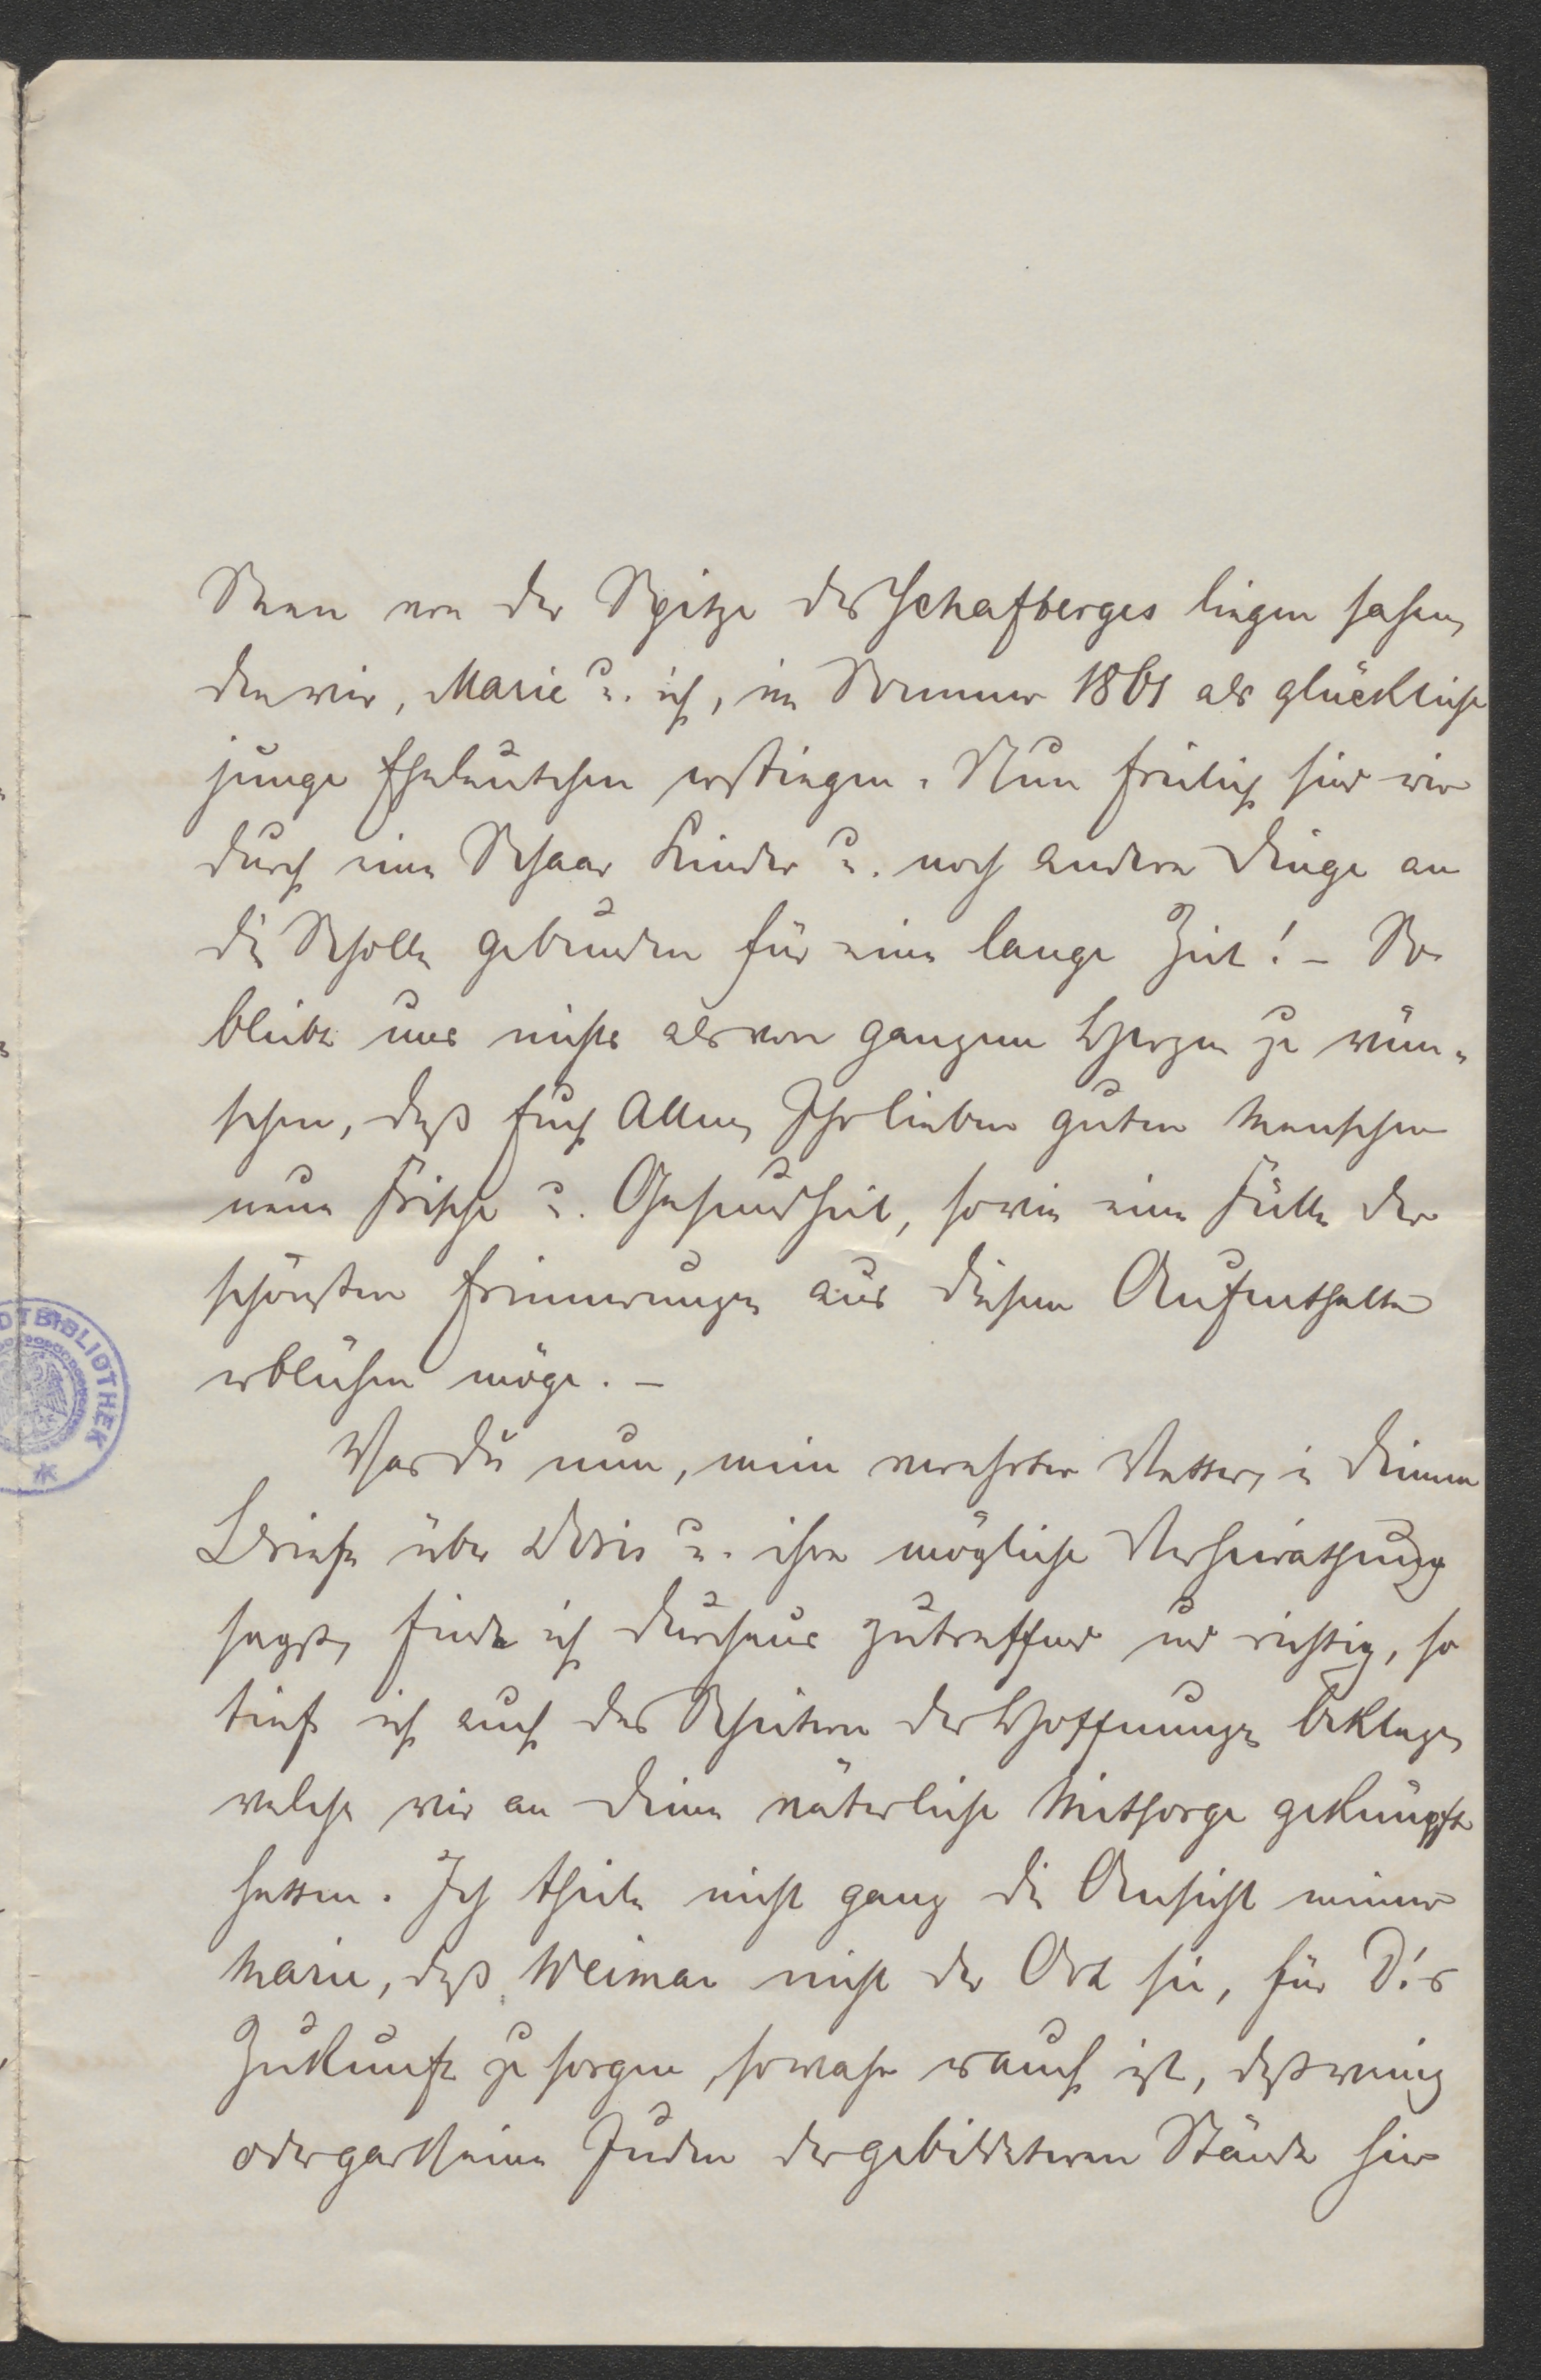 Seen von der Spitze des Schafberges liegen sahen,
den wir, Marie u. ich, im Sommer 1861 als glückliche
junge Eheleutchen erstiegen. Nun freilich sind wir
durch eine Schaar Kinder u. noch andere Dinge an
die Scholle gebunden für eine lange Zeit! – So
bleibt uns nichts als von ganzem Herzen zu wün-
schen, daß Euch Allen, Ihr lieben guten Menschen
neue Frische u. Gesundheit, sowie eine Fülle der
schönsten Erinnerungen aus diesem Aufenthalte
erblühen möge. –
Was Du nun, mein verehrter Vetter, in Deinem
Briefe über Doris u. ihre mögliche Verheirathung
sagst, finde ich durchaus zutreffend und richtig, so
tief ich auch das Scheitern der Hoffnungen beklage,
welche wir an Deine väterliche Mitsorge geknüpft
hatten. Ich theile nicht ganz die Ansicht meiner
Marie, daß Weimar nicht der Ort sei, für D's
Zukunft zu sorgen, so wahr es auch ist, daß wenig
oder gar keine Juden der gebildeteren Stände hier
DTBIBLIOTHEK